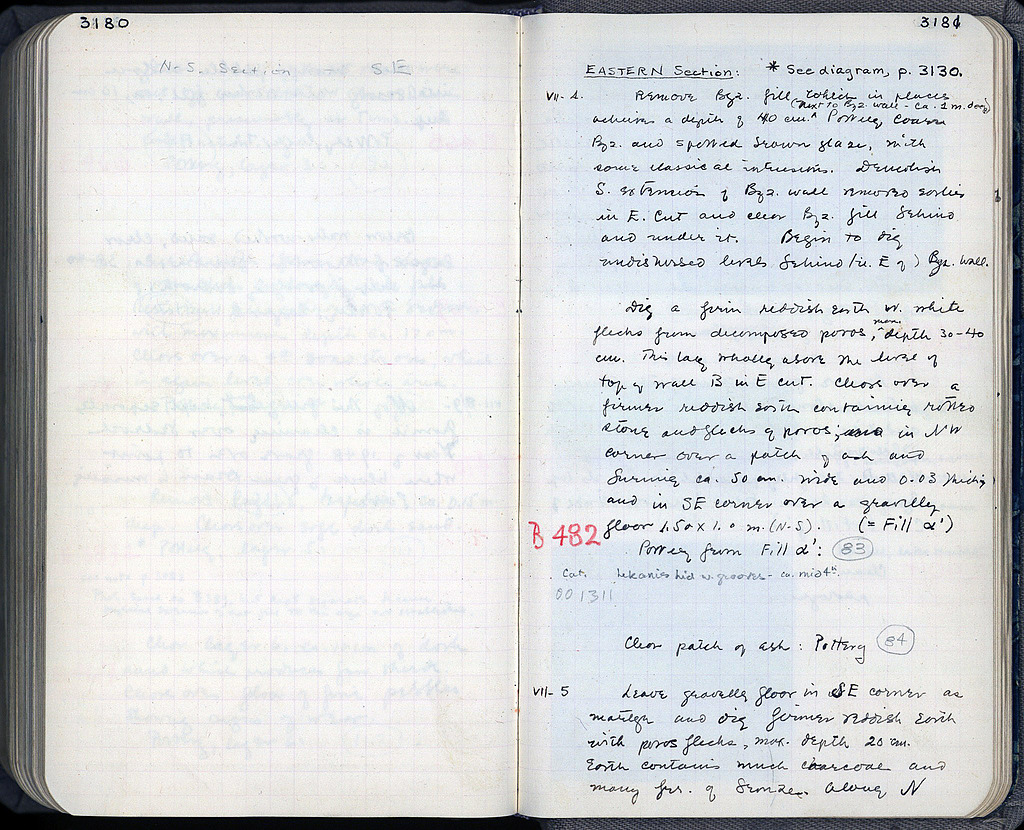 3180
N-S. Section SE
3181
EASTERN Section: * See diagram, p. 3130.
VII-1. Remove Byz. fill, which in places
(next to Byz. wall - ca. 1 m. deep)
achieves a depth of 40 cm.^ Pottery coarse
Byz. and spotted brown glaze, with
some classical intrusions. Demolish
S. extension of Byz. wall removed earlier
in E. Cut and clear Byz. fill behind
and under it. Begin to dig
undisturbed levels behind (i.e. E of) Byz. wall.
Dig a firm reddish earth w. white
flecks from decomposed poros, max. depth 30-40
cm. This lay wholly above the level of
top of wall B in E cut. Close over a
firmer reddish earth containing rotted
stone and flecks of poros; in NW
corner over a patch of ash and
burning ca. 50 cm. wide and 0.03 thick;
and in SE corner over a gravelly
floor 1.50 x 1.0 m. (N-S). (= Fill α')
B 482
Pottery from Fill α': 83
Cat. lekanis lid w. grooves - ca. mid 4th.
001311
Clear patch of ash: Pottery 84
VII-5 Leave gravelly floor in SE corner as
and dig firmer reddish earth
with poros flecks, max. depth 20 cm.
Earth contains much charcoal and
many frr. of bronze. Along N